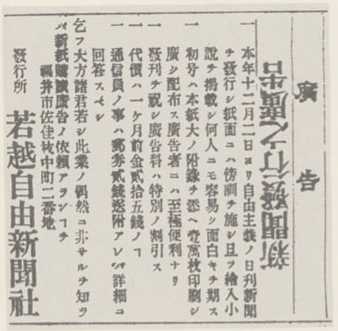 廣告
新聞發行之廣告
一 本年十二月二日ヨリ自由主義ノ日刊新聞
ヲ発行シ紙面ニハ傍訓ヲ施シ且ツ繪入小
説ヲ掲載シ何人ニモ容易ク面白キヲ期ス
一 初号ハ本紙大ノ附録ヲ添ヘ壹萬枚印刷シ
廣ク配布ス廣告者ニハ至極便利ナリ
一 発刊ヲ祝シ廣告料ハ特別ノ割引ス
一 代價ハ一ケ月前金貳拾五銭ノヿ
一 通信員ノ事ハ郵券貳銭送附アレバ詳細ニ
回答スベシ
乞フ大方諸君若シ此業ノ偶然ニ非サルヲ知ラ
バ新紙購讀廣告ノ依頼アランヿヲ
福井市佐佳枝中町二番地
發行所 若越自由新聞社